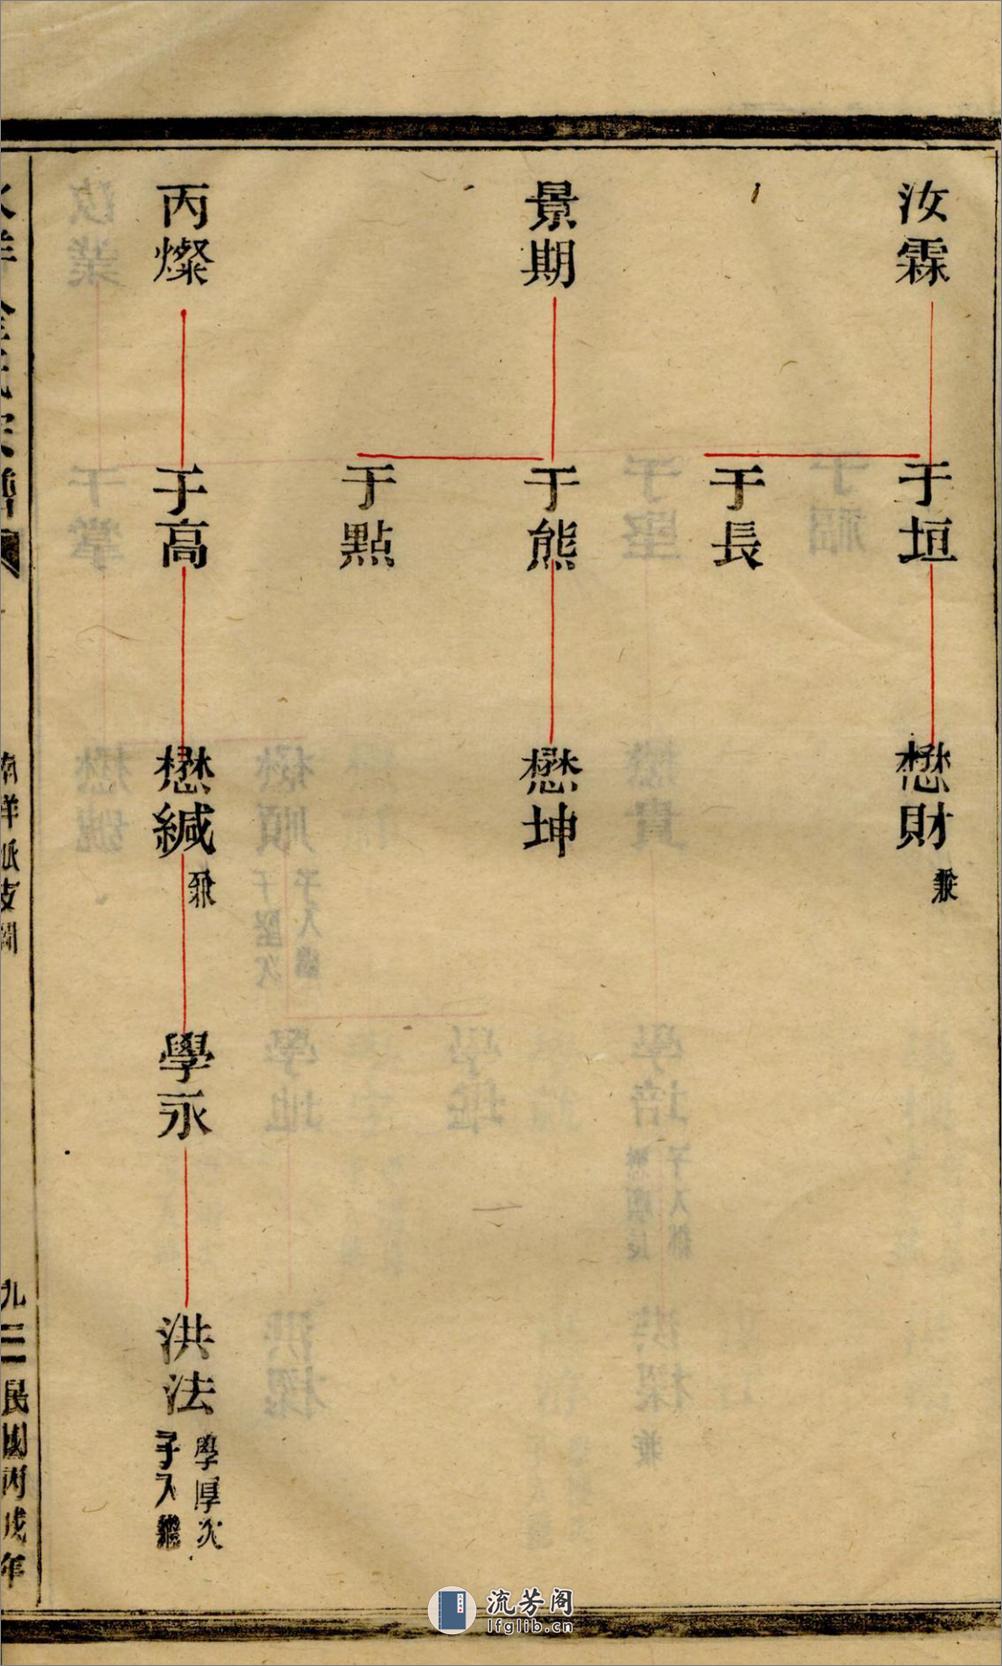 汝霖
于垣
懋財
于長
景期
于熊
懋坤
于點
丙燦
于高
懋緘
學永
洪法
學厚次
子入繼
南洋派支圖
九三
民國丙戌年
流芳阁
lfglib.cn